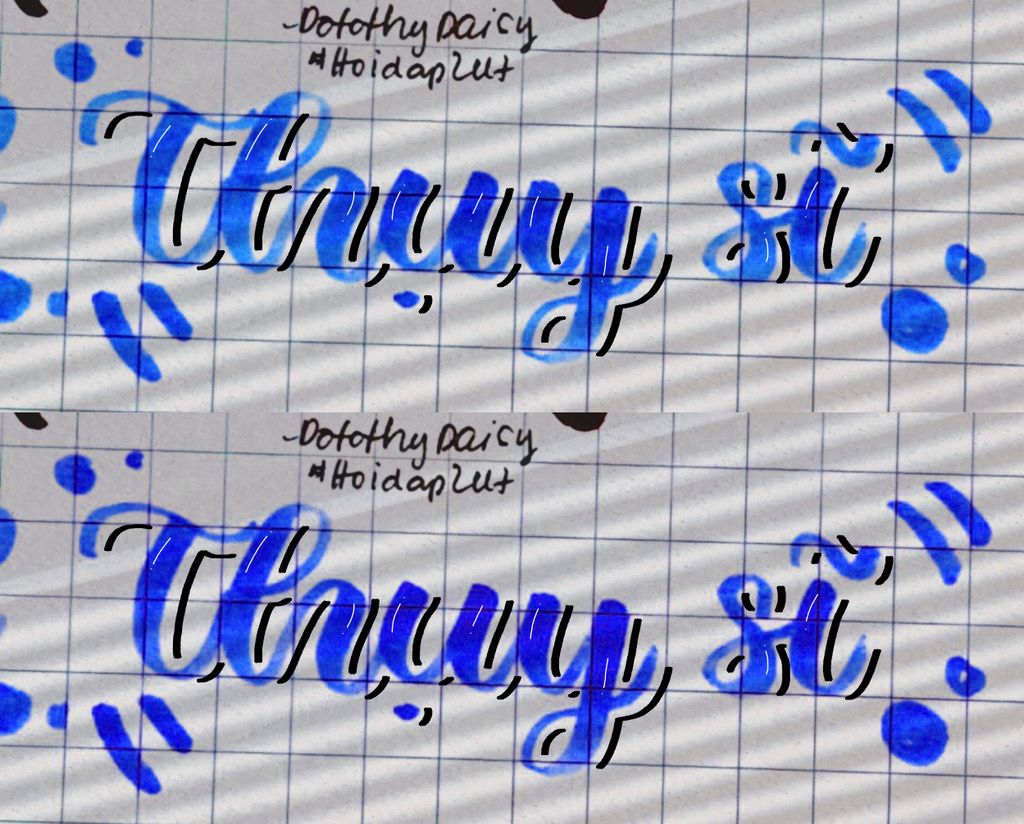 -Dorothy Daisy
#Hoidap247
Thụy sĩ
-Dorothy Daisy
#Hoidap247
Thụy sĩ